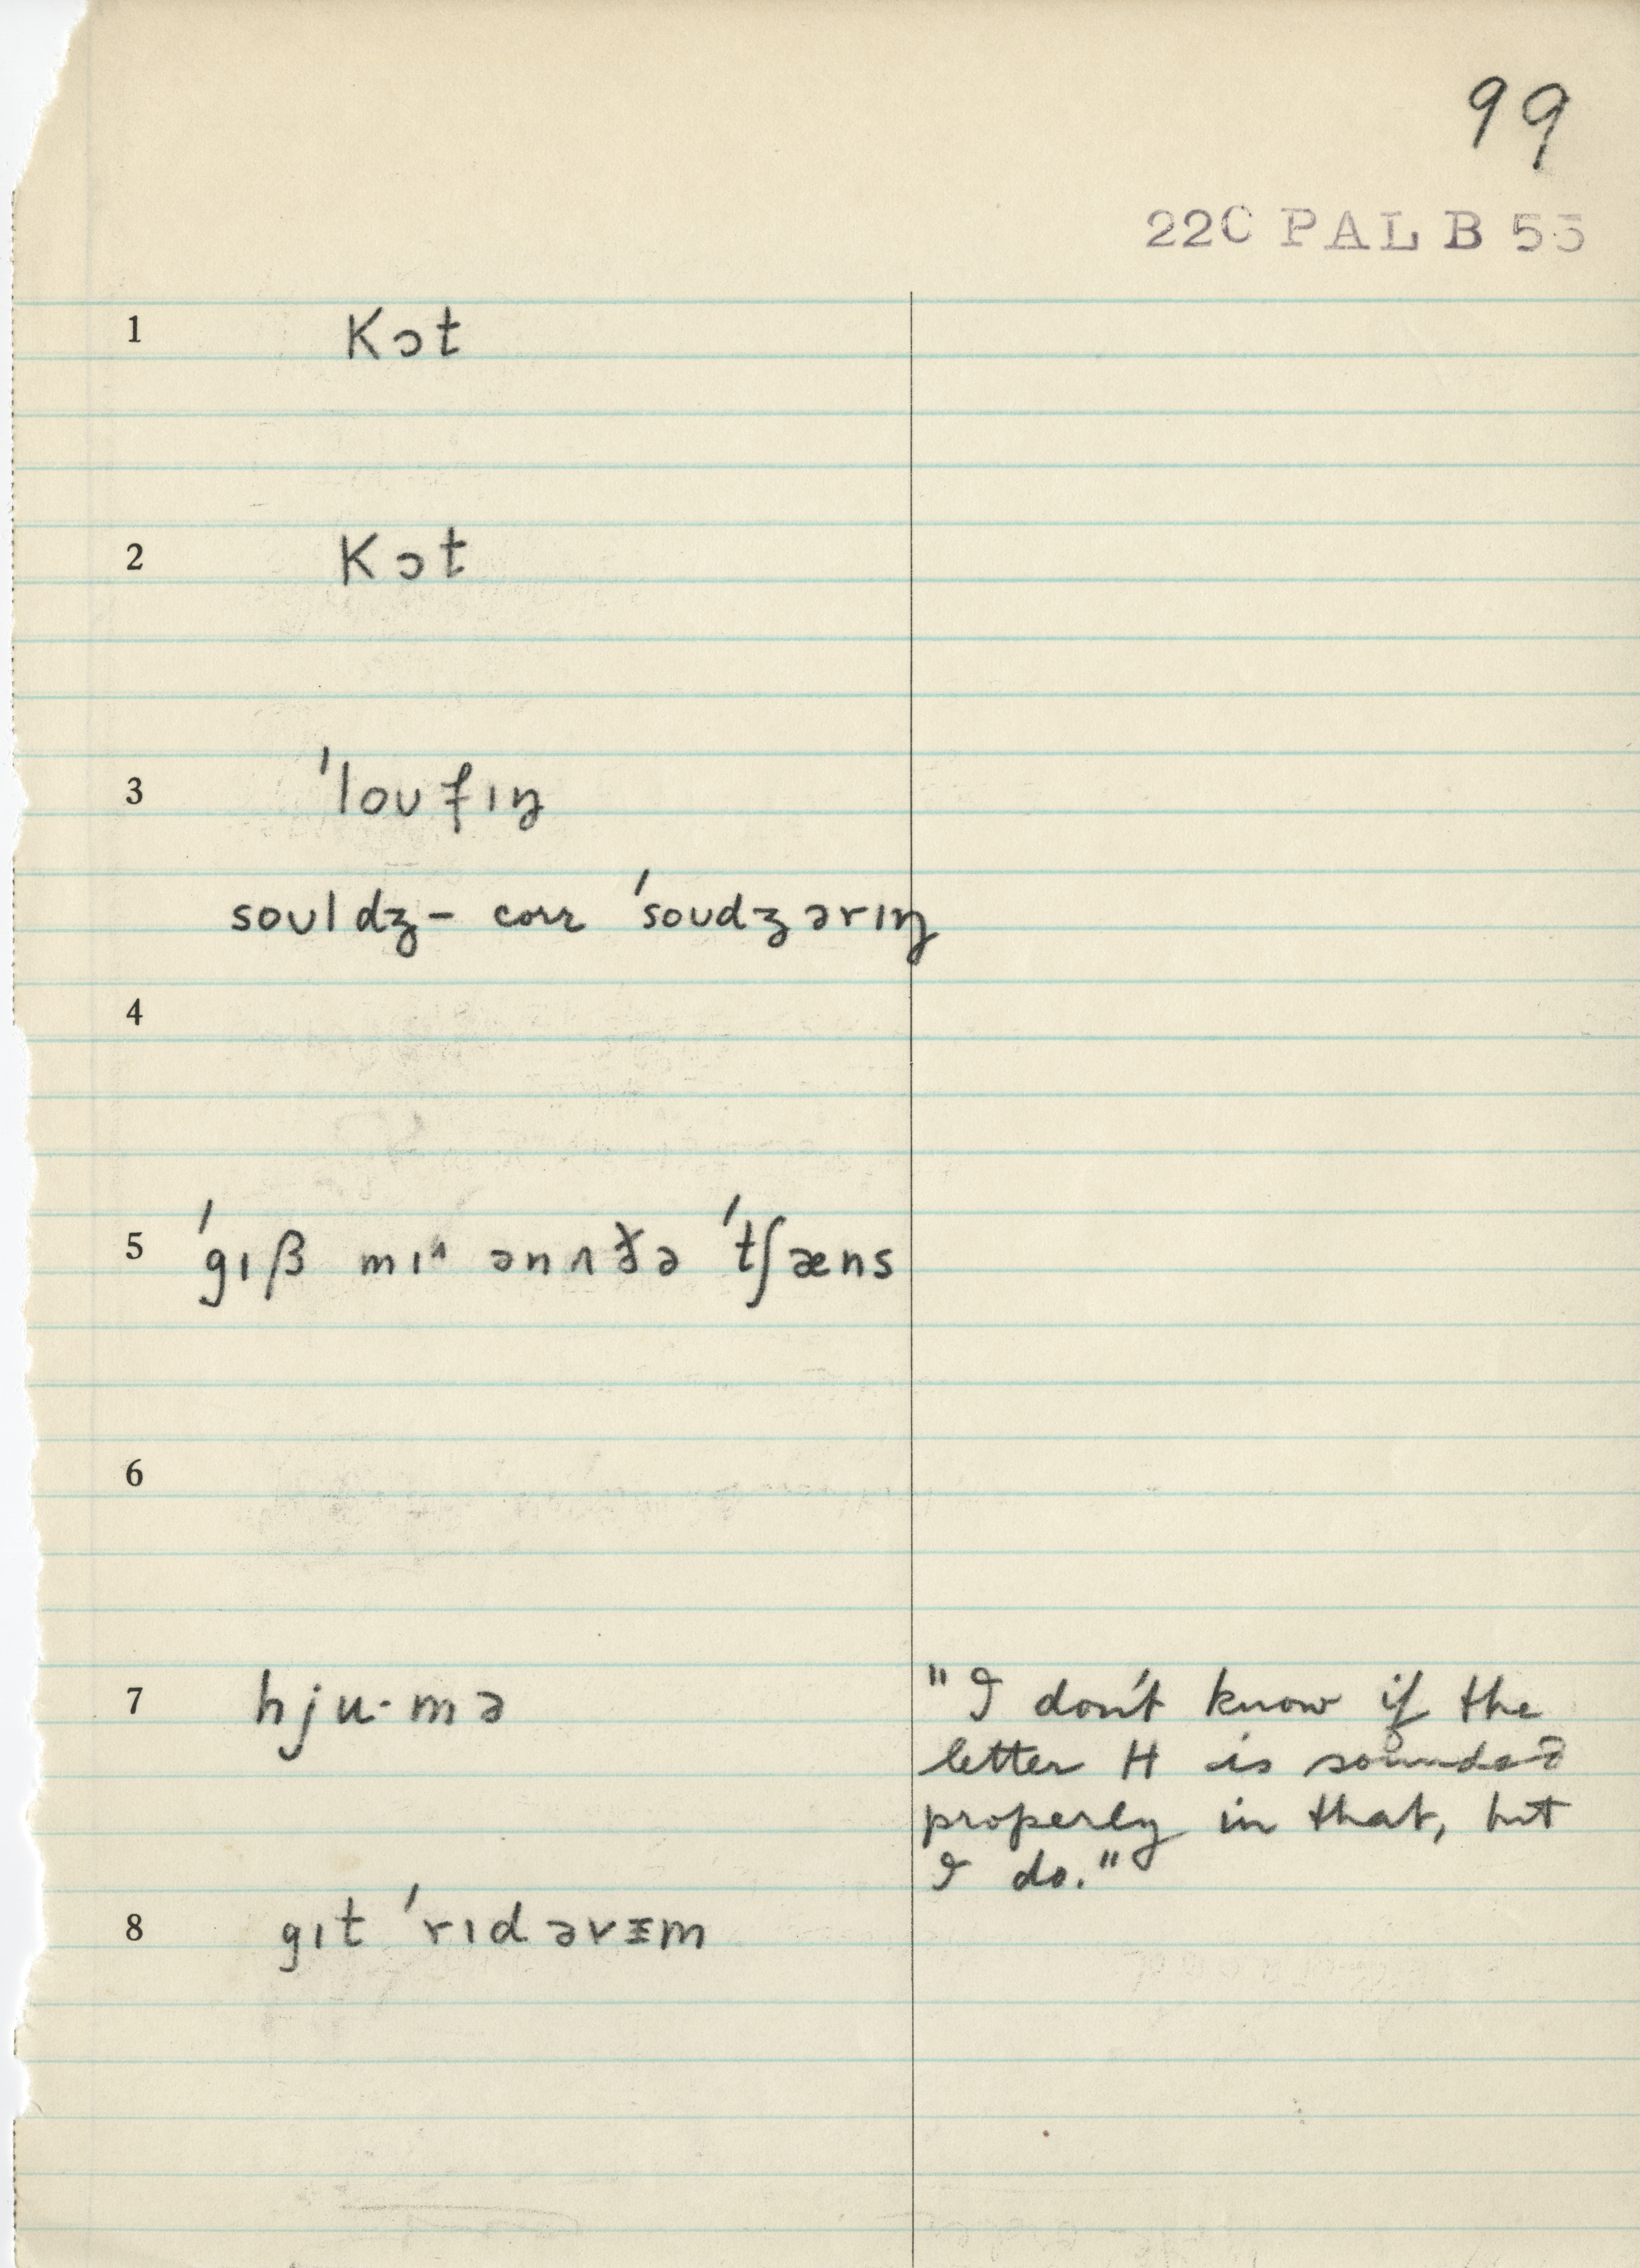 99
22C PAL B 55
1 kɔt
2 kɔt
3 ˈloʊfɪŋ
soʊldʒ– corr ˈsoʊdʒərɪŋ
4
5 ˈgɪβ mɪᶺ ənʌðə ˈtʃæns
6
7 hju·mə "I don't know if the
letter H is sounded
properly in that, but
I do."
8 gɪt ˈrɪd əvᵻm